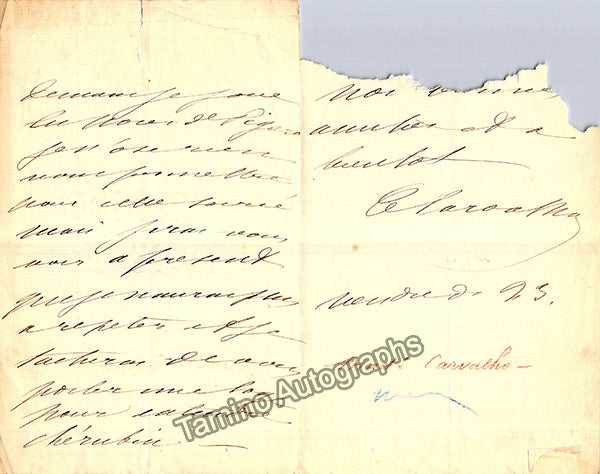 demain je joue
les Noces de Figaro
je n'ose rien
vous promettre
pour cette soirée
mais j'irai vous
voir a present
que je n'aurai plus
a repeter et je
tacherai de vous
porter une loge
pour
chérubin
Nos bonnes
amitiés et a
bientot
C Carvalho
vendredi 23.
Carvalho
Tamino Autographs